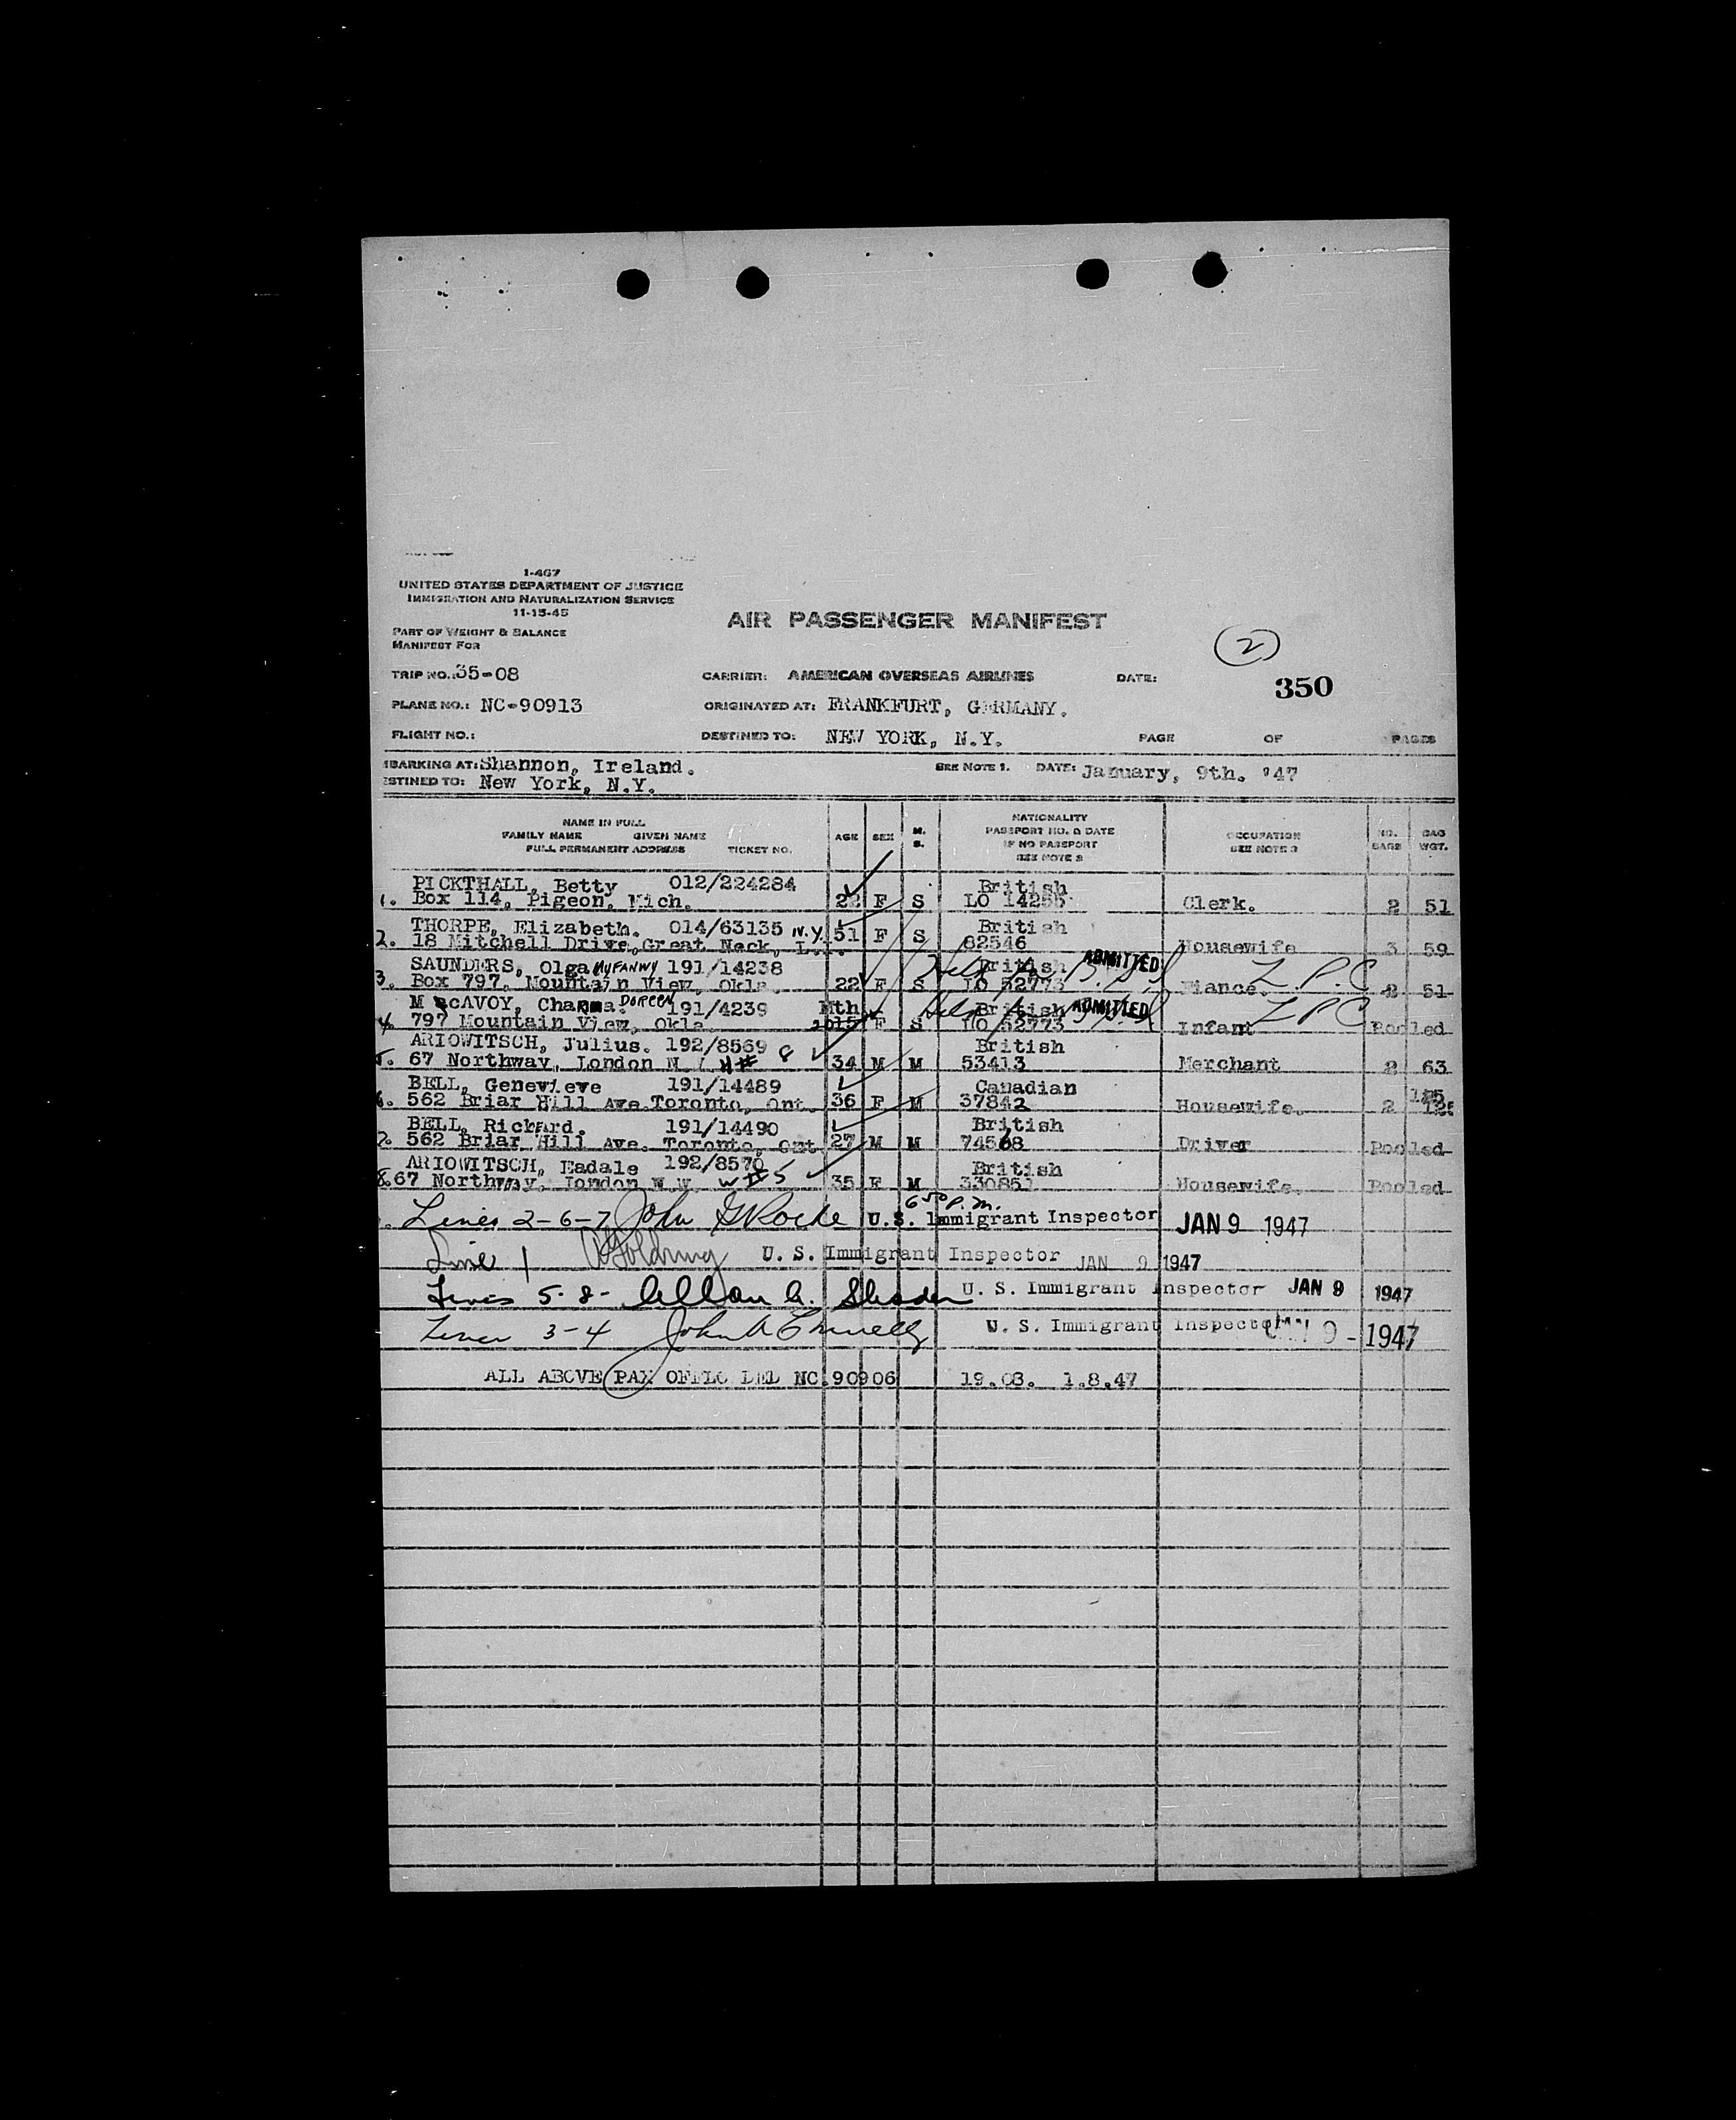 1-467
UNITED STATES DEPARTMENT OF JUSTICE
IMMIGRATION AND NATURALIZATION SERVICE
11-15-45
AIR PASSENGER MANIFEST
PART OF WEIGHT & BALANCE
MANIFEST FOR
(2)
TRIP NO.: 35-08 CARRIER: AMERICAN OVERSEAS AIRLINES DATE: 350
PLANE NO.: NC-90913 ORIGINATED AT: FRANKFURT, GERMANY.
FLIGHT NO.: DESTINED TO: NEW YORK, N.Y. PAGE OF PAGES
MBARKING AT: Shannon, Ireland. SEE NOTE 1. DATE: January, 9th. '47
ESTINED TO: New York, N.Y.
NAME IN FULL
FAMILY NAME GIVEN NAME
FULL PERMANENT ADDRESS TICKET NO.
AGE SEX M. S.
NATIONALITY
PASSPORT NO. & DATE
IF NO PASSPORT
SEE NOTE 2
OCCUPATION
SEE NOTE 3
NO. BAGS
BAG WGT.
PICKTHALL, Betty 012/224284 British
1. Box 114, Pigeon, Mich. 22 F S LO 14255 Clerk. 2 51
THORPE, Elizabeth. 014/63135 N.Y. British
2. 18 Mitchell Drive, Great Neck, L.I. 51 F S 82546 Housewife 3 59
SAUNDERS, Olga MYFANWY 191/14238 British ADMITTED
3. Box 797, Mountain View, Okla. 22 F S LO 52773 Fiance. 2 51
McAVOY, Charma. DOREEN 191/4239 Mth British ADMITTED
4. 797 Mountain View, Okla. 15 F S LO 52773 Infant Pooled
ARIOWITSCH, Julius. 192/8569 British
5. 67 Northway, London N. H# 8 34 M M 53413 Merchant 2 63
BELL, Genevieve 191/14489 Canadian
6. 562 Briar Hill Ave. Toronto, Ont. 36 F M 37842 Housewife. 2 125
BELL, Richard. 191/14490 British
7. 562 Briar Hill Ave. Toronto, Ont 27 M M 74568 Driver Pooled
ARIOWITSCH, Eadale 192/8570 British
8. 67 Northway, London N.W. W#5 35 F M 330851 Housewife. Pooled
6 50 P.M.
Lines 2-6-7 John G Rocke U.S. Immigrant Inspector JAN 9 1947
Line 1 U. S. Immigrant Inspector JAN 9 1947
Lines 5-8- Allan A. U. S. Immigrant Inspector JAN 9 1947
Lines 3-4 John A U. S. Immigrant Inspector JAN 9 - 1947
ALL ABOVE PAX OFFLO DED NC.90906 19.08. 1.8.47